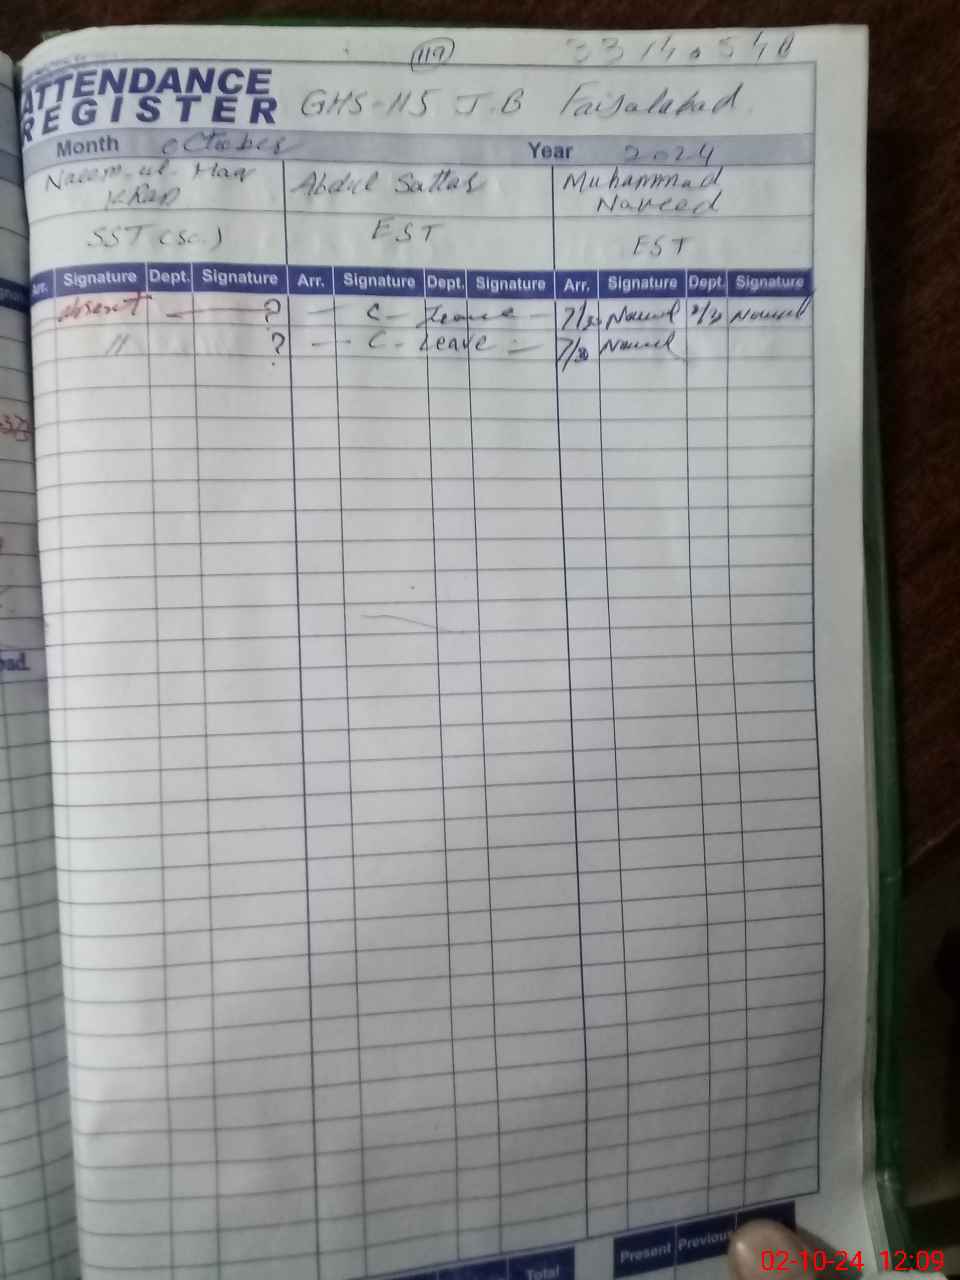 119
33140540
ATTENDANCE
REGISTER GHS-115 J.B Faisalabad
Month October Year 2024
Naeem-ul-Haq Abdul Sattar Muhammad
Khan Naveed
SST (Sc.) EST EST
Arr. Signature Dept. Signature Arr. Signature Dept. Signature Arr. Signature Dept. Signature
absent ? C- Leave 7/30 Naveed Naveed
" ? C- Leave 7/30 Naveed
Total Present Previous
02-10-24 12:09